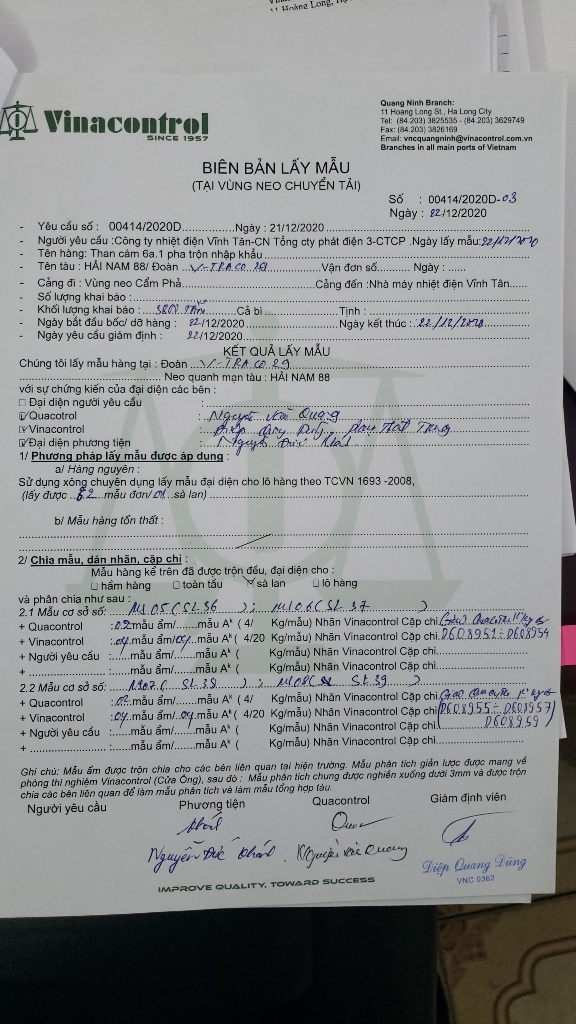 11 Hoàng Long,
Vinacontrol
SINCE 1957
Quang Ninh Branch:
11 Hoang Long St., Ha Long City
Tel: (84.203) 3825535 - (84.203) 3629749
Fax: (84.203) 3826169
Email: vncquangninh@vinacontrol.com.vn
Branches in all main ports of Vietnam
BIÊN BẢN LẤY MẪU
(TẠI VÙNG NEO CHUYỂN TẢI)
Số : 00414/2020D-03
Ngày : 22/12/2020
- Yêu cầu số : 00414/2020D Ngày : 21/12/2020
- Người yêu cầu :Công ty nhiệt điện Vĩnh Tân-CN Tổng cty phát điện 3-CTCP .Ngày lấy mẫu: 22/12/2020
- Tên hàng: Than cám 6a.1 pha trộn nhập khẩu
- Tên tàu : HẢI NAM 88/ Đoàn V-TRACO Vận đơn số Ngày :
- Cảng đi : Vùng neo Cẩm Phả Cảng đến :Nhà máy nhiệt điện Vĩnh Tân
- Số lượng khai báo :
- Khối lượng khai báo : 3800 Tấn Cả bì Tịnh :
- Ngày bắt đầu bốc/ dỡ hàng : 22/12/2020 Ngày kết thúc : 22/12/2020
- Ngày yêu cầu giám định : 22/12/2020
KẾT QUẢ LẤY MẪU
Chúng tôi lấy mẫu hàng tại : Đoàn V-TRACO 29
Neo quanh mạn tàu : HẢI NAM 88
với sự chứng kiến của đại diện các bên :
□ Đại diện người yêu cầu :
☑ Quacotrol : Nguyễn Văn Quang
☑ Vinacontrol : Diệp Quang Dũng,
☑ Đại diện phương tiện : Nguyễn Đức Khánh
1/ Phương pháp lấy mẫu được áp dụng :
a/ Hàng nguyên :
Sử dụng xông chuyên dụng lấy mẫu đại diện cho lô hàng theo TCVN 1693 -2008,
(lấy được 82 mẫu đơn/ 01 sà lan)
b/ Mẫu hàng tổn thất :
2/ Chia mẫu, dán nhãn, cặp chì :
Mẫu hàng kể trên đã được trộn đều, đại diện cho :
□ hầm hàng □ toàn tầu ☑ sà lan □ lô hàng
và phân chia như sau :
2.1 Mẫu cơ sở số: M05 (SL 36 ) ; M06 (SL 37 )
+ Quacontrol : 02 mẫu ẩm/ mẫu Aᵏ ( 4/ Kg/mẫu) Nhãn Vinacontrol Cặp chì
+ Vinacontrol : 04 mẫu ẩm/ 04 mẫu Aᵏ ( 4/20 Kg/mẫu) Nhãn Vinacontrol Cặp chì D608951 ÷ D608954
+ Người yêu cầu : mẫu ẩm/ mẫu Aᵏ ( Kg/mẫu) Nhãn Vinacontrol Cặp chì
+ : mẫu ẩm/ mẫu Aᵏ ( Kg/mẫu) Nhãn Vinacontrol Cặp chì
2.2 Mẫu cơ sở số: M07 ( SL 38 ) ; M08 ( SL 39 )
+ Quacontrol : 02 mẫu ẩm/ mẫu Aᵏ ( 4/ Kg/mẫu) Nhãn Vinacontrol Cặp chì
+ Vinacontrol : 04 mẫu ẩm/ 04 mẫu Aᵏ ( 4/20 Kg/mẫu) Nhãn Vinacontrol Cặp chì (D608955 ÷ D608957)
+ Người yêu cầu : mẫu ẩm/ mẫu Aᵏ ( Kg/mẫu) Nhãn Vinacontrol Cặp chì D608959)
+ : mẫu ẩm/ mẫu Aᵏ ( Kg/mẫu) Nhãn Vinacontrol Cặp chì
Ghi chú: Mẫu ẩm được trộn chia cho các bên liên quan tại hiện trường. Mẫu phân tích giản lược được mang về
phòng thí nghiệm Vinacontrol (Cửa Ông), sau đó : Mẫu phân tích chung được nghiền xuống dưới 3mm và được trộn
chia các bên liên quan để làm mẫu phân tích và làm mẫu tổng hợp tàu.
Người yêu cầu Phương tiện Quacontrol Giám định viên
Nguyễn Đức Khánh Nguyễn Văn Quang
Diệp Quang Dũng
VNC 0362
IMPROVE QUALITY, TOWARD SUCCESS